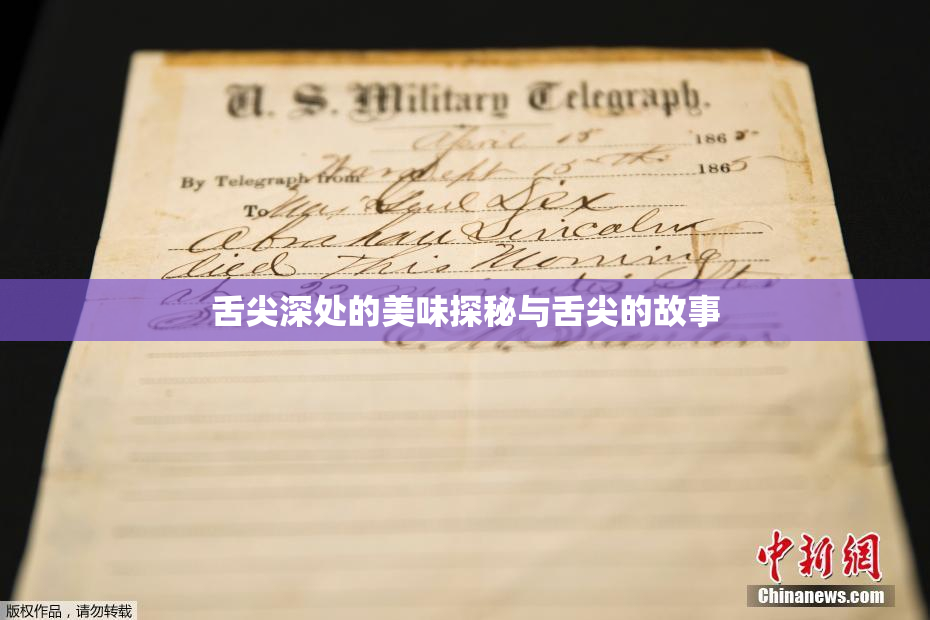 U. S. Military Telegraph.
April 15 1865
By Telegraph from War Dept 15th 1865
To Maj Genl Dix
Abraham Lincoln
died This Morning
at 22 minutes after
舌尖深处的美味探秘与舌尖的故事
E. M. Stanton
中新網
Chinanews.com
版权作品，请勿转载